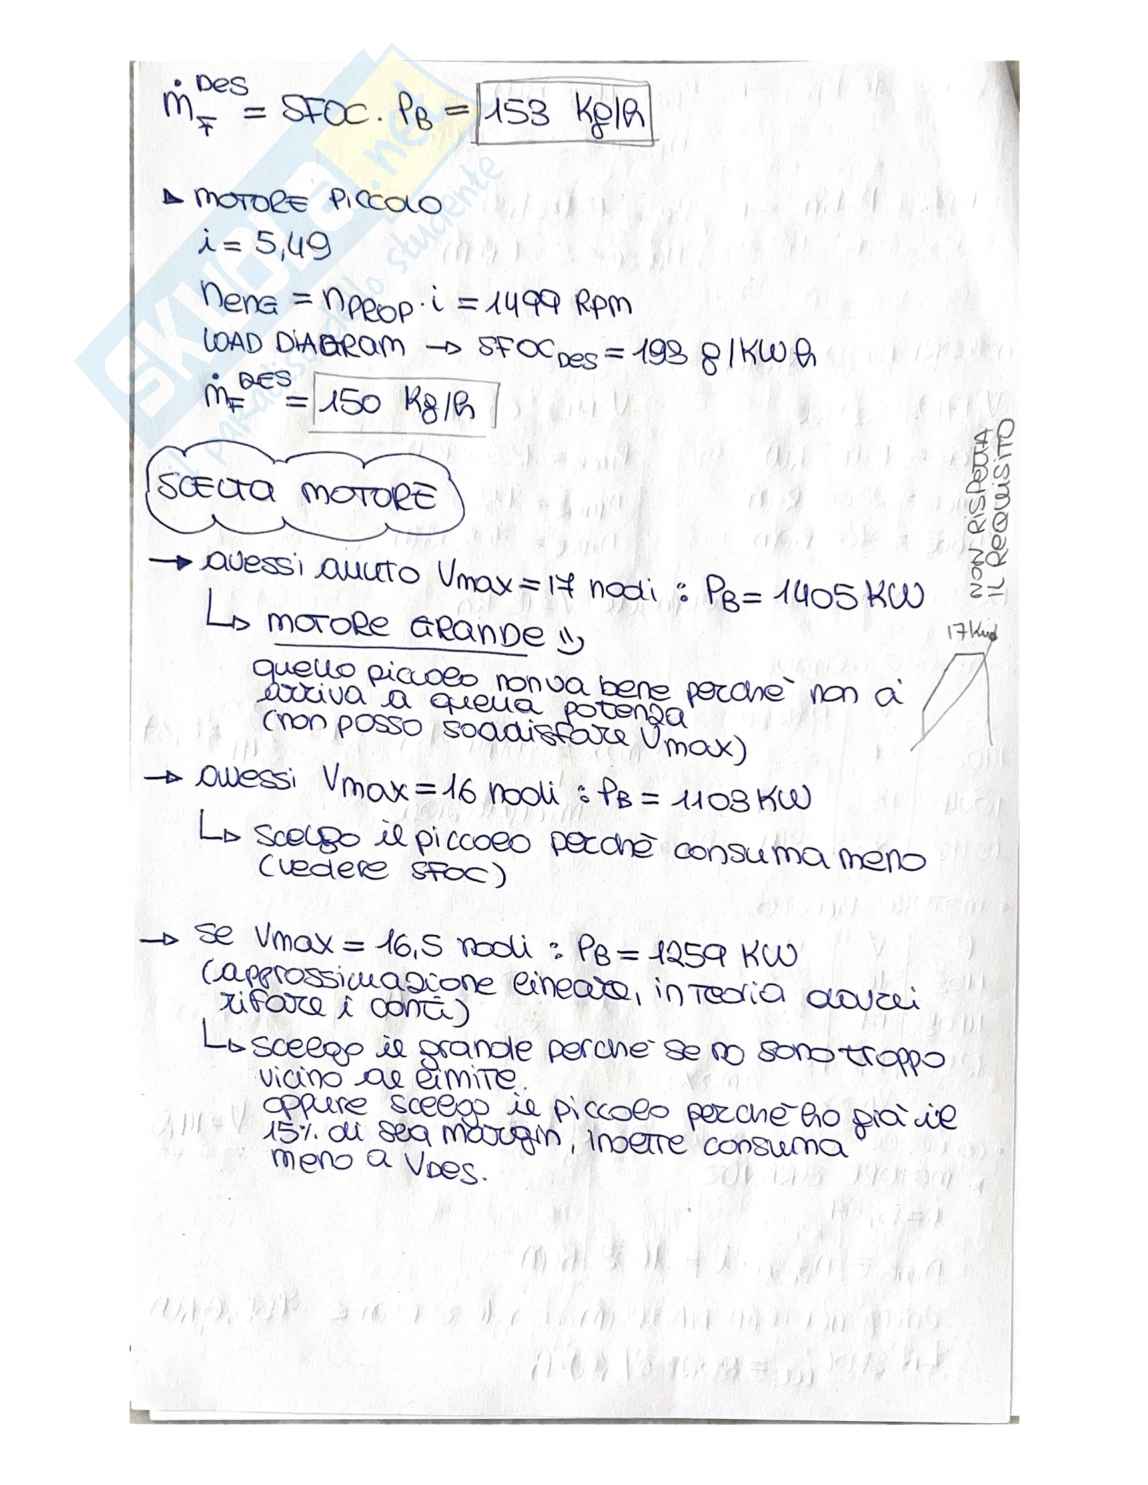 ṁ_F^DES = SFOC · P_B = 153 Kg/h
▷ MOTORE PICCOLO
i = 5,49
n_ENG = n_PROP · i = 1499 Rpm
LOAD DIAGRAM → SFOC_DES = 193 g/KWh
ṁ_F^DES = 150 Kg/h
SCELTA MOTORE
→ avessi avuto Vmax = 17 nodi : P_B = 1405 KW
↳ MOTORE GRANDE
quello piccolo non va bene perchè non ci
arriva a quella potenza
(non posso soddisfare Vmax)
NON RISPETTA
IL REQUISITO
17 Knd
→ avessi Vmax = 16 nodi : P_B = 1103 KW
↳ scelgo il piccolo perchè consuma meno
(vedere SFOC)
→ se Vmax = 16,5 nodi : P_B = 1259 KW
(approssimazione lineare, in teoria dovrei
rifare i conti)
↳ scelgo il grande perchè se no sono troppo
vicino al limite.
oppure scelgo il piccolo perchè ho già il
15% di sea margin, inoltre consuma
meno a V_DES.
SKUOLA.net
il paradiso dello studente